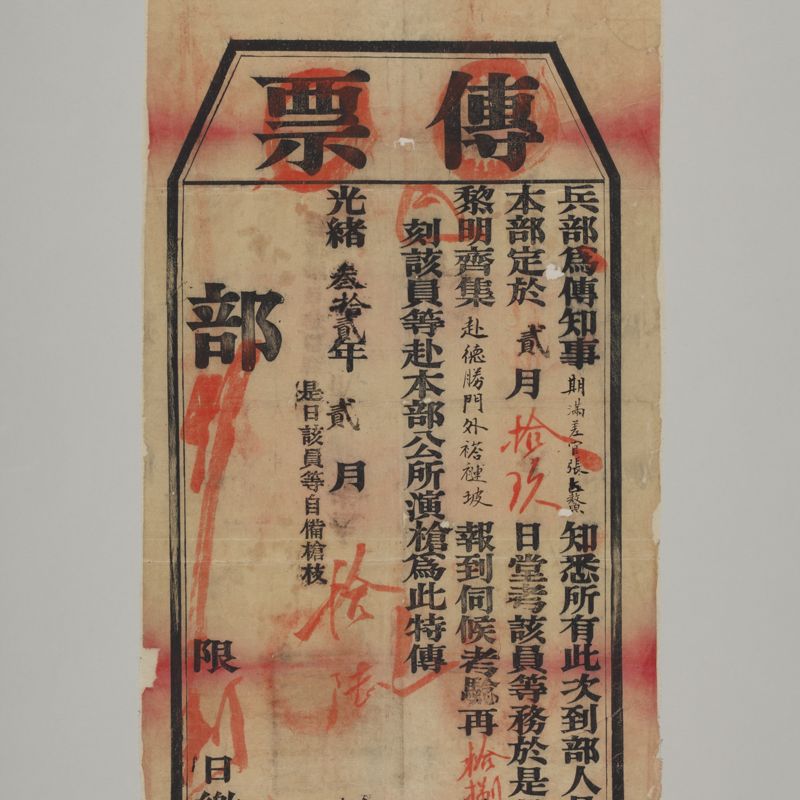 傳票
兵部為傳知事期滿差官張占鰲知悉所有此次到部人員
本部定於貳月拾玖日堂考該員等務於是
黎明齊集赴德勝門外褡褳坡報到伺候考驗再拾捌
刻該員等赴本部公所演槍為此特傳
光緒叁拾貳年貳月拾陸
是日該員等自備槍枝
部
限
日繳